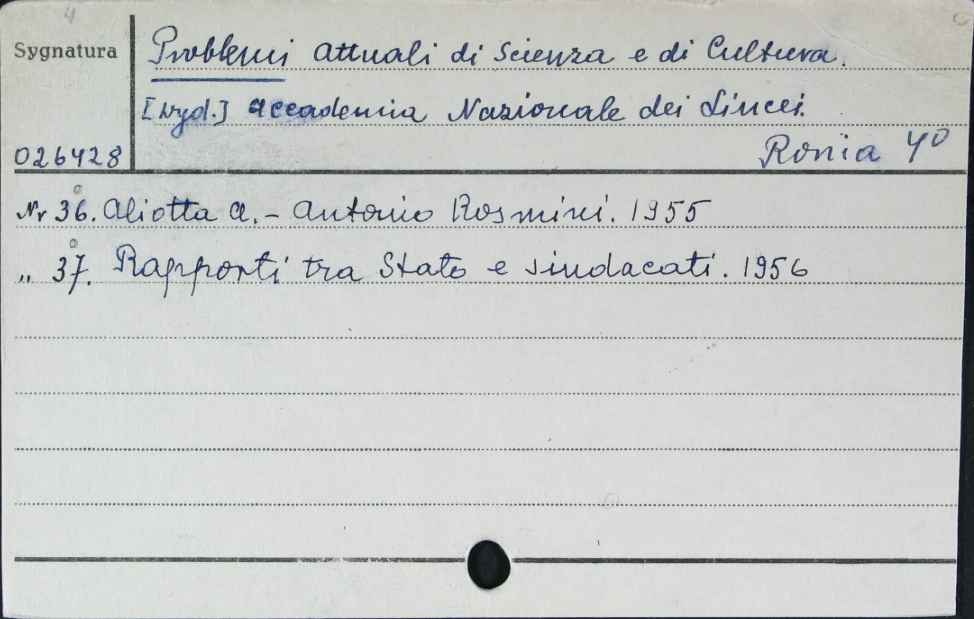 4
Sygnatura
Problemi Attuali di Scienza e di Cultura.
[Wyd.] Accademia Nazionale dei Lincei.
026428
Roma 4°
Nr 36. Aliotta A. - Antonio Rosmini. 1955
„ 37. Rapporti tra Stato e sindacati. 1956